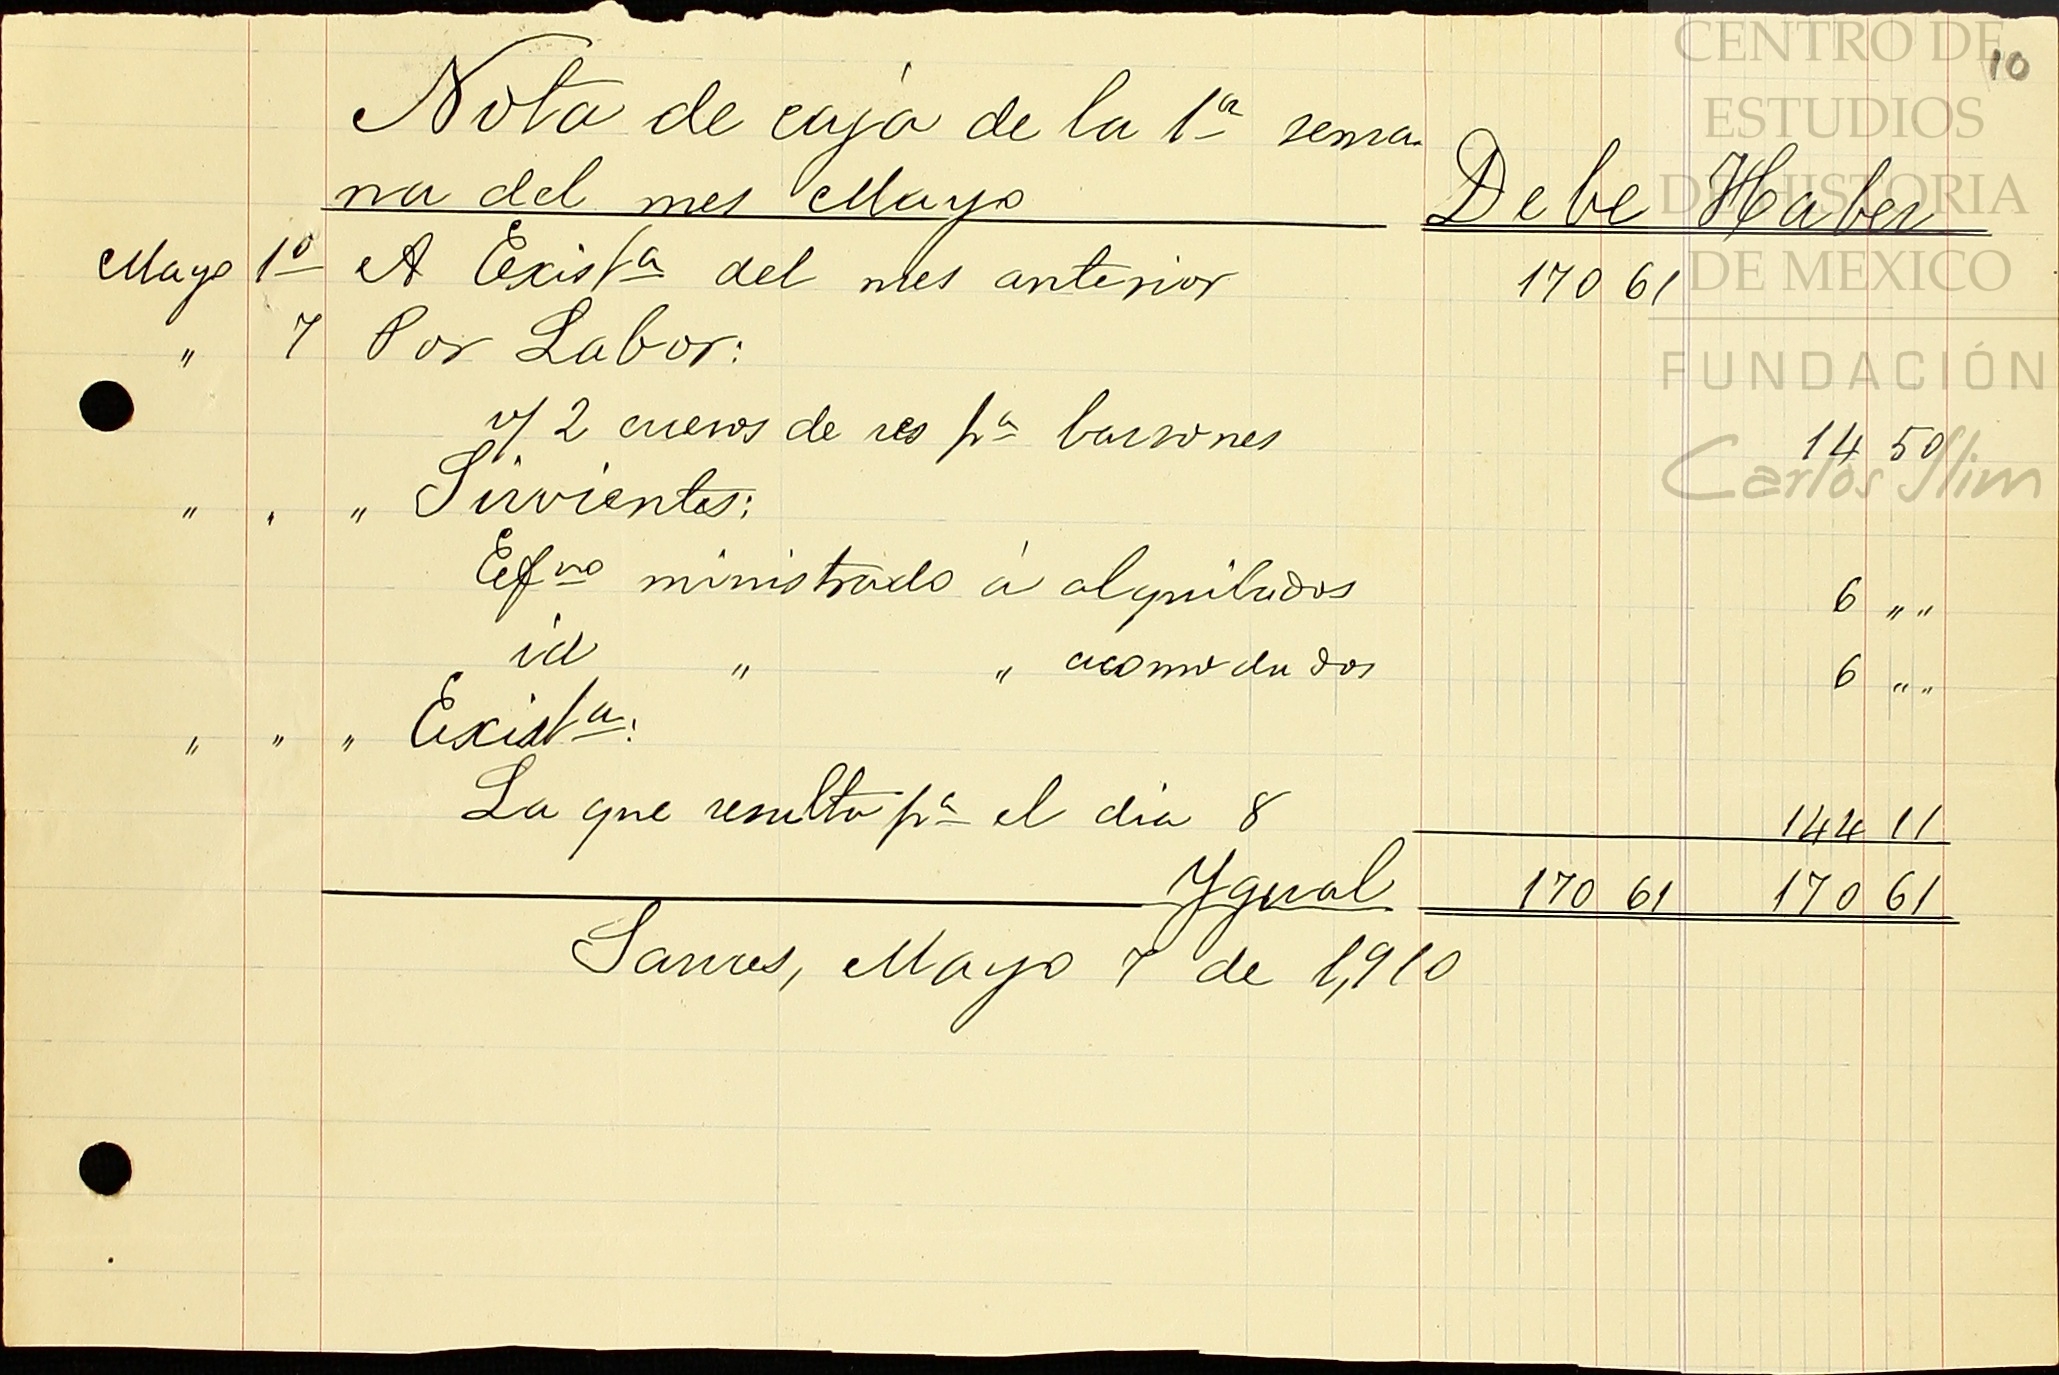 10
Nota de caja de la 1ª sema-
na del mes Mayo Debe Haber
Mayo 1º A Existª del mes anterior 170 61
" 7 Por Labor:
v/ 2 cueros de res pª barzones 14 50
" " " Sirvientes:
Efvo ministrado á alquilados 6 " "
id " " acomodados 6 " "
" " " Existª:
La que resulta pª el dia 8 144 11
Ygual 170 61 170 61
Mayo 7 de 1,910
CENTRO DE
ESTUDIOS
DE HISTORIA
DE MEXICO
FUNDACIÓN
Carlos Slim